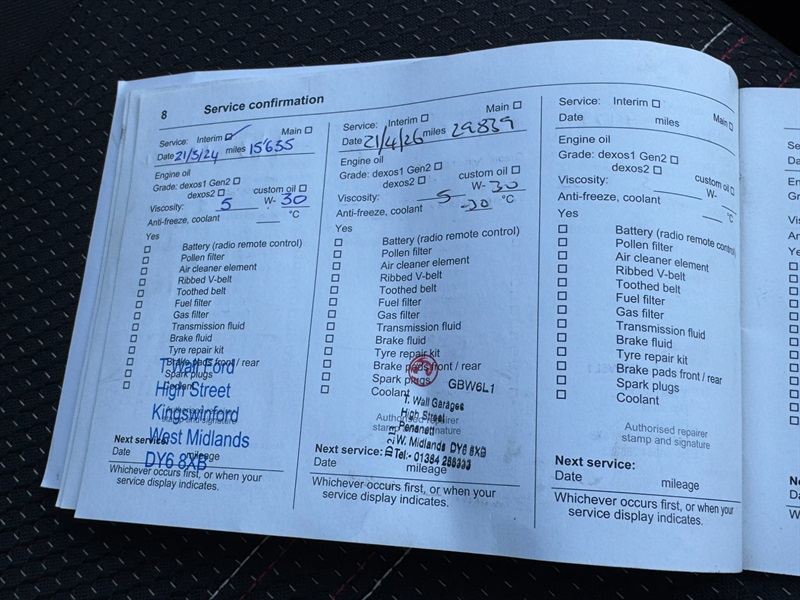 8 Service confirmation
Service: Interim Main
Date 21/5/24 miles 15'635
Engine oil
Grade: dexos1 Gen2
dexos2 custom oil
Viscosity: 5 W- 30
Anti-freeze, coolant °C
Yes
Battery (radio remote control)
Pollen filter
Air cleaner element
Ribbed V-belt
Toothed belt
Fuel filter
Gas filter
Transmission fluid
Brake fluid
Tyre repair kit
Brake pads front / rear
Spark plugs
Coolant
T Wall Ford
High Street
Kingswinford
West Midlands
DY6 8XB
Authorised repairer
stamp and signature
Next service:
Date mileage
Whichever occurs first, or when your
service display indicates.
Service: Interim Main
Date 21/4/26 miles 29839
Engine oil
Grade: dexos1 Gen2
dexos2 custom oil
Viscosity: 5 W- 30
Anti-freeze, coolant -30 °C
Yes
Battery (radio remote control)
Pollen filter
Air cleaner element
Ribbed V-belt
Toothed belt
Fuel filter
Gas filter
Transmission fluid
Brake fluid
Tyre repair kit
Brake pads front / rear
Spark plugs
Coolant
GBW6L1
T. Wall Garages
High Street
Pensnett
W. Midlands DY6 8XB
Tel:- 01384
Authorised repairer
stamp and signature
Next service:
Date mileage
Whichever occurs first, or when your
service display indicates.
Service: Interim Main
Date miles
Engine oil
Grade: dexos1 Gen2
dexos2 custom oil
Viscosity: W-
Anti-freeze, coolant °C
Yes
Battery (radio remote control)
Pollen filter
Air cleaner element
Ribbed V-belt
Toothed belt
Fuel filter
Gas filter
Transmission fluid
Brake fluid
Tyre repair kit
Brake pads front / rear
Spark plugs
Coolant
Authorised repairer
stamp and signature
Next service:
Date mileage
Whichever occurs first, or when your
service display indicates.